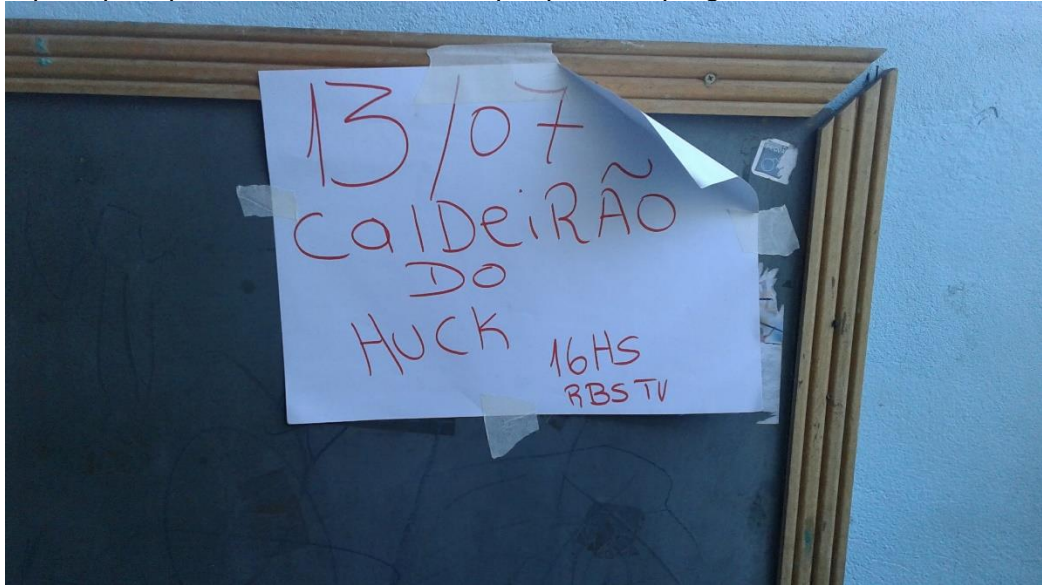 13/07
CalDeiRÃO
DO
HUCK
16HS
RBS TV